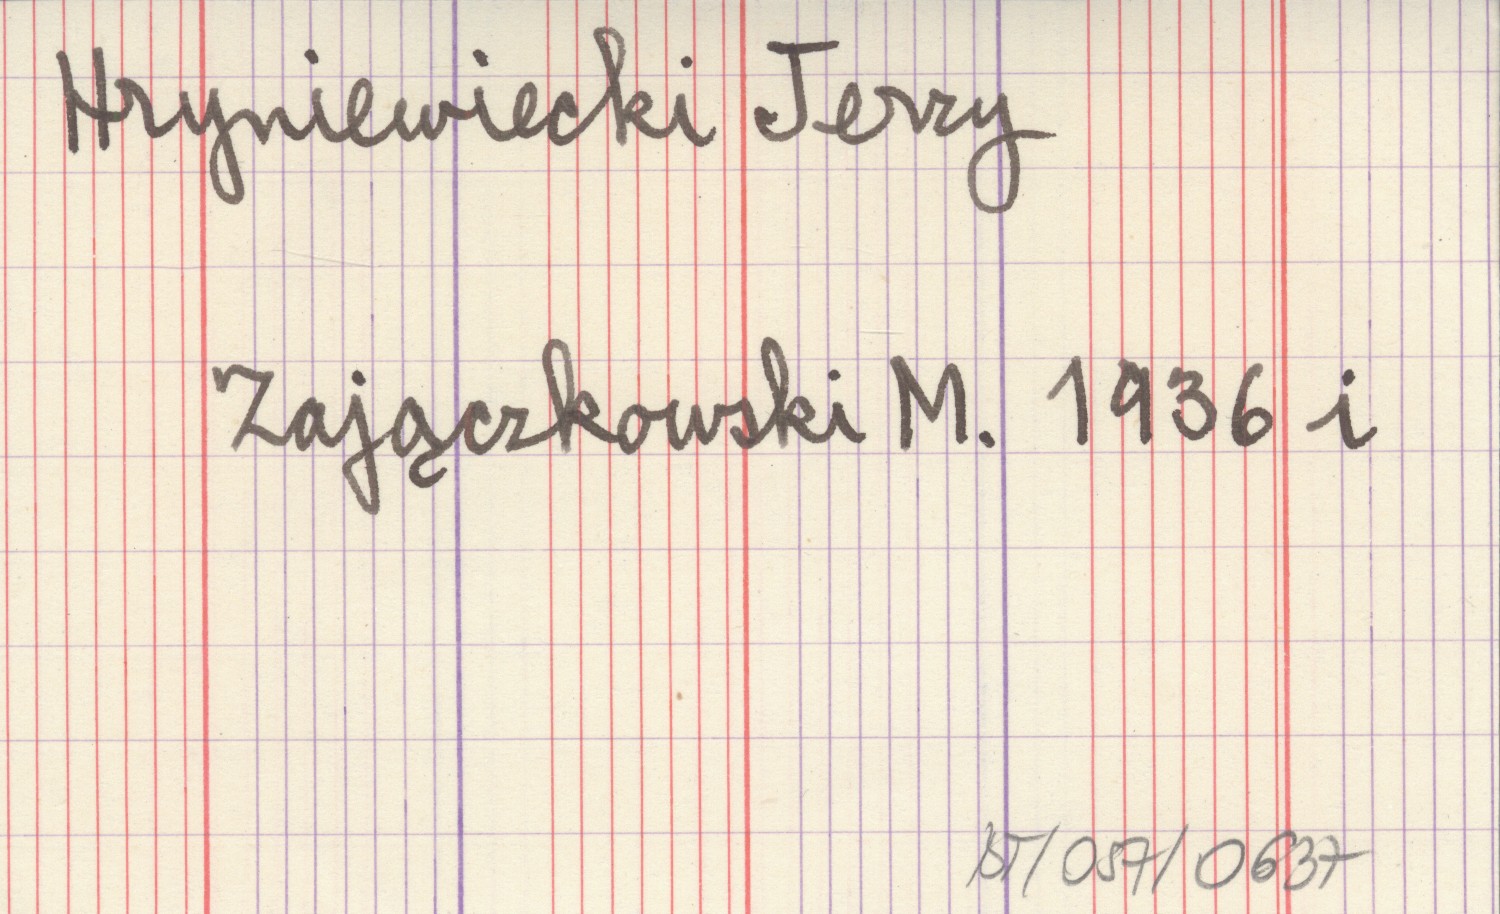 Hryniewiecki Jerzy
Zajączkowski M. 1936 i
KST/087/0637